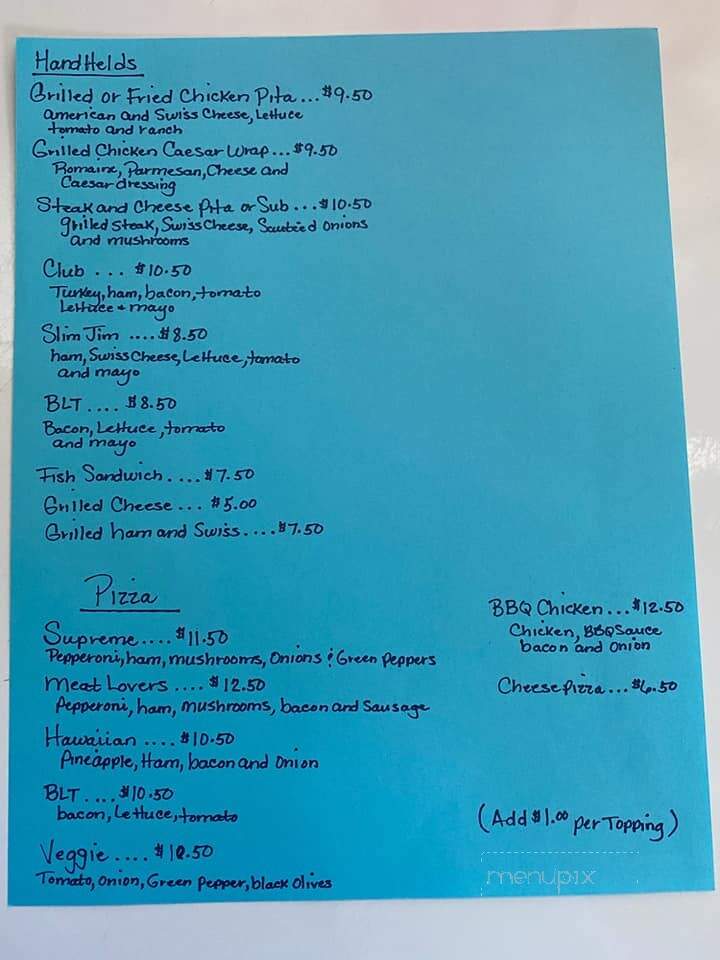 HandHelds
Grilled or Fried Chicken Pita...$9.50
american and Swiss Cheese, Lettuce
tomato and ranch
Grilled Chicken Caesar Wrap...$9.50
Romaine, Parmesan, Cheese and
Caesar dressing
Steak and Cheese Pita or Sub...$10.50
grilled steak, Swiss Cheese, Sauteed onions
and mushrooms
Club ... $10.50
Turkey, ham, bacon, tomato
Lettuce + mayo
Slim Jim ....$8.50
ham, Swiss Cheese, Lettuce, tomato
and mayo
BLT .... $8.50
Bacon, Lettuce, tomato
and mayo
Fish Sandwich ....$7.50
Grilled Cheese ... $5.00
Grilled ham and Swiss....$7.50
Pizza
Supreme.... $11.50
Pepperoni, ham, mushrooms, Onions & Green Peppers
Meat Lovers .... $12.50
Pepperoni, ham, mushrooms, bacon and Sausage
Hawaiian .... $10.50
Pineapple, Ham, bacon and Onion
BLT .... $10.50
bacon, Lettuce, tomato
Veggie .... $10.50
Tomato, onion, Green Pepper, black Olives
BBQ Chicken...$12.50
Chicken, BBQ Sauce
bacon and onion
Cheese Pizza...$6.50
(Add $1.00 per Topping)
menupix